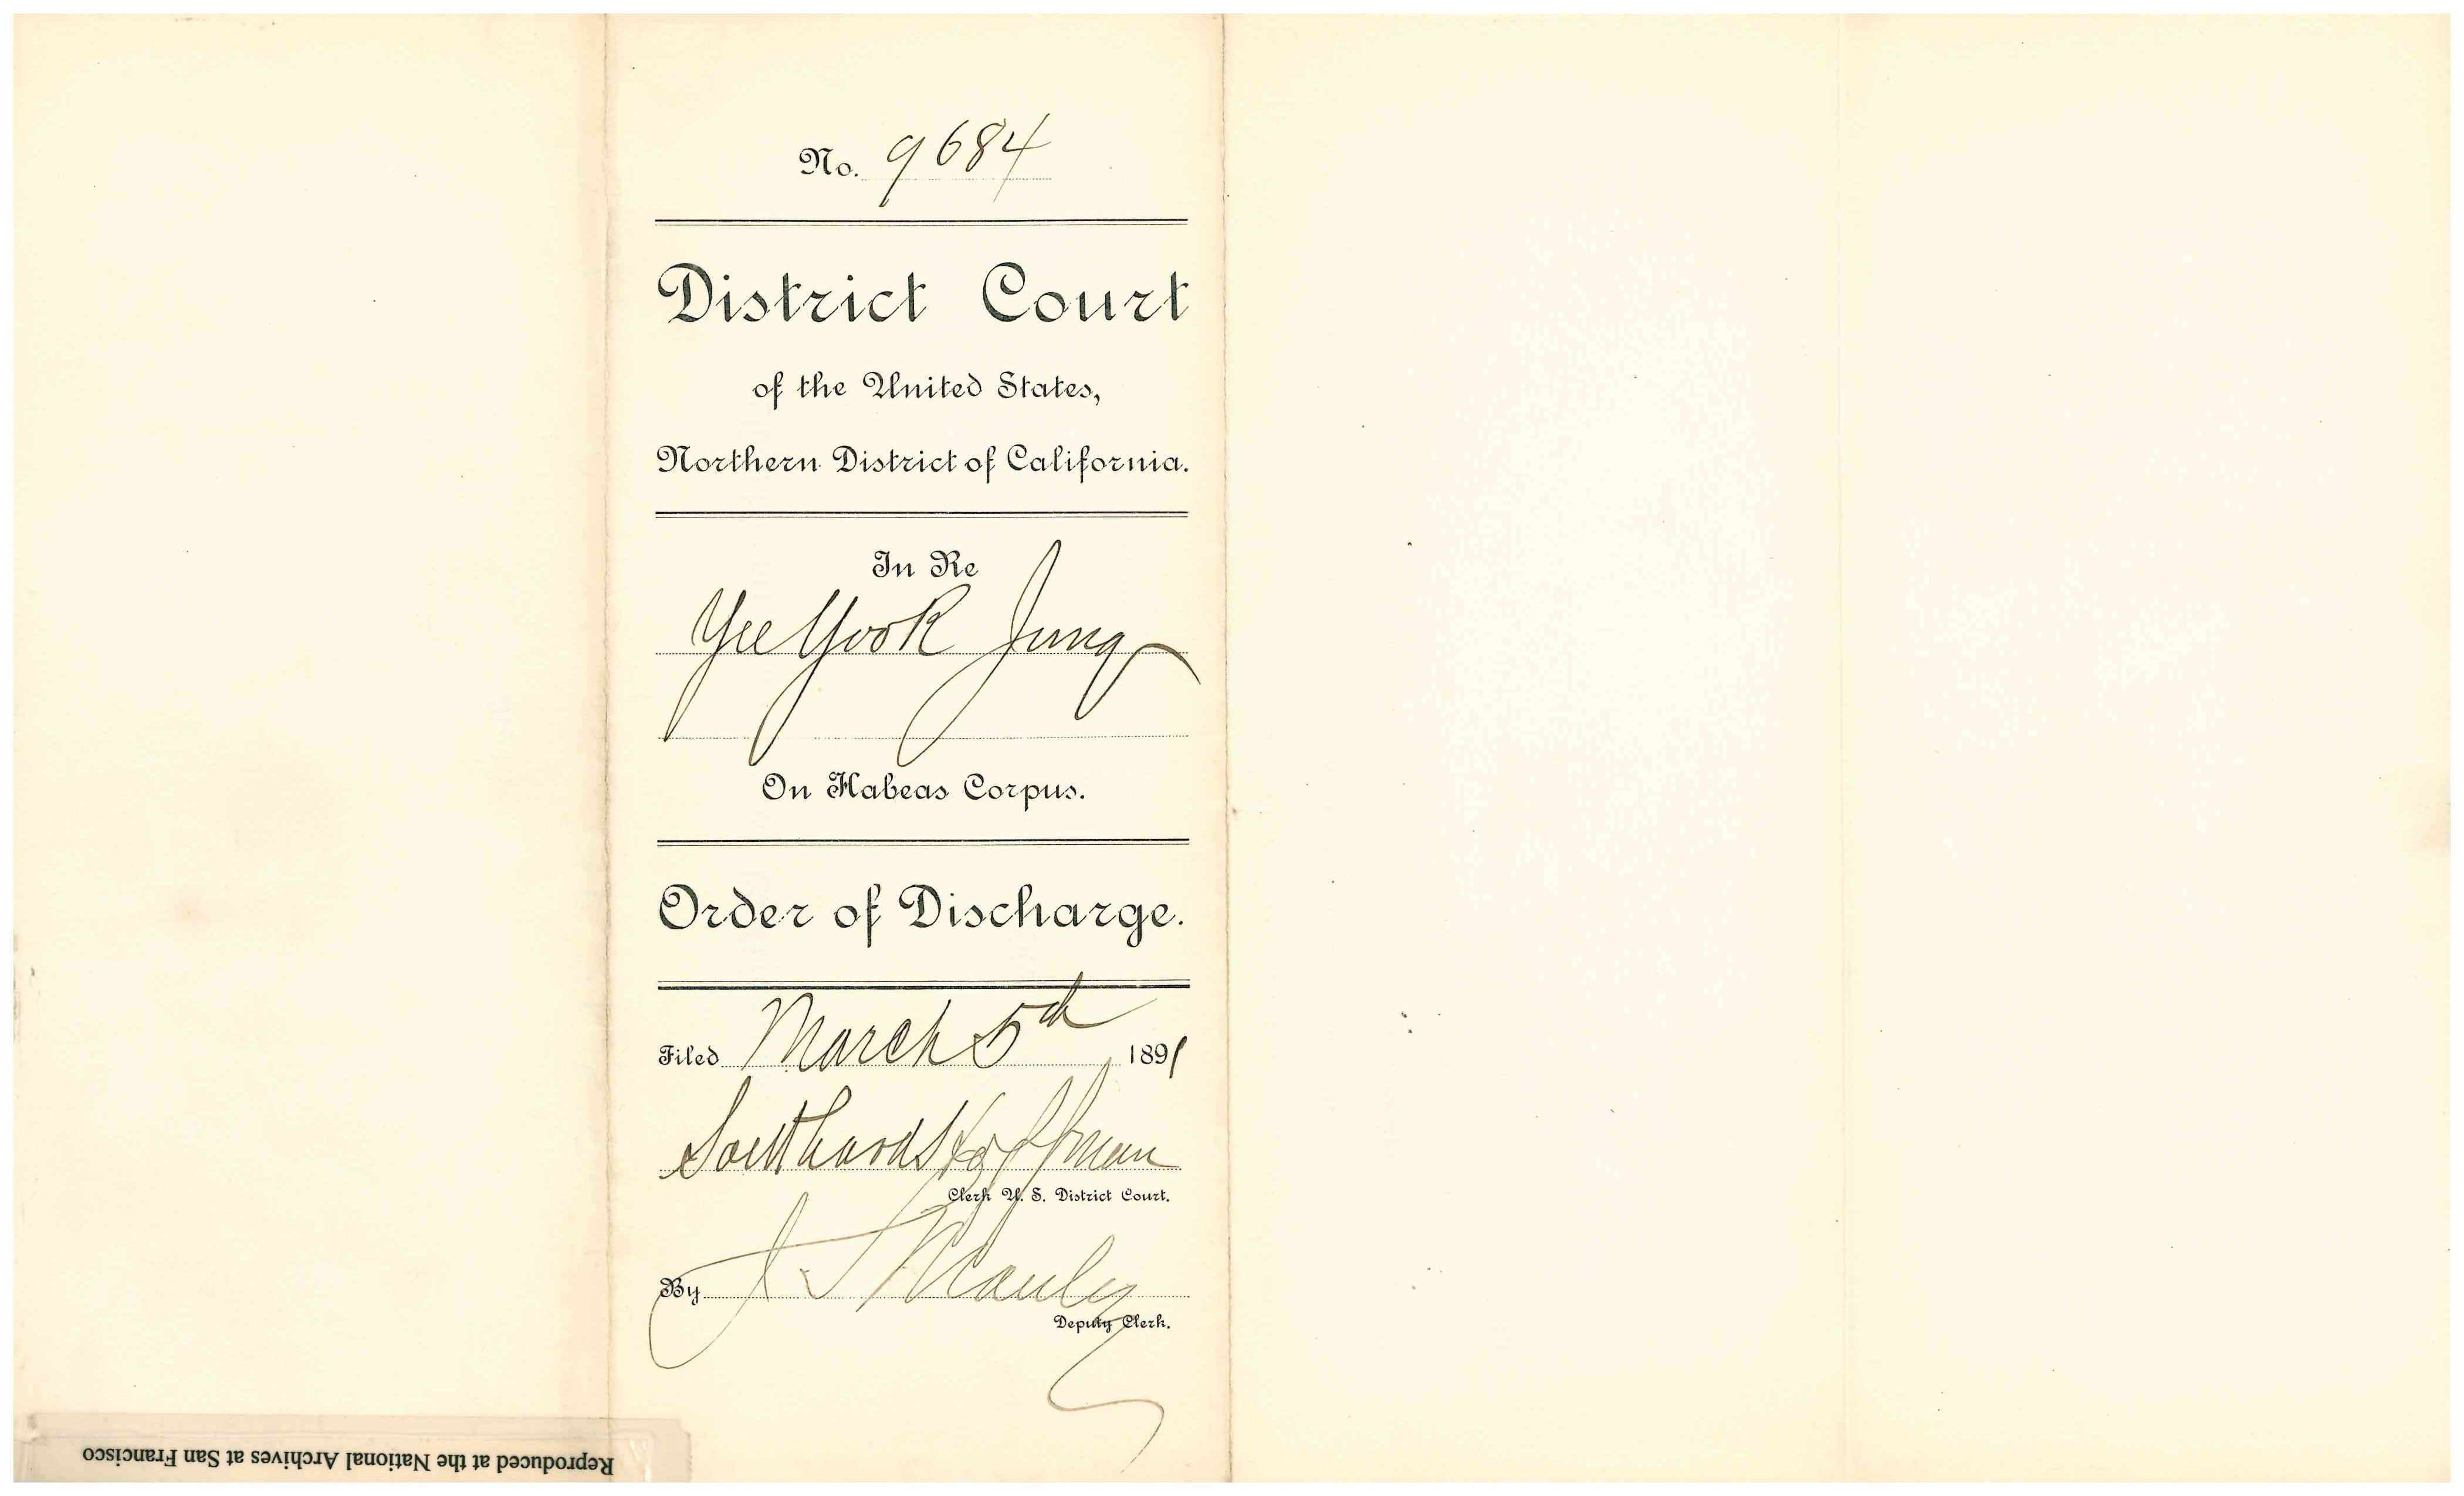 No. 9684
District Court
of the United States,
Northern District of California.
In Re
Yee Yook Jung
On Habeas Corpus.
Order of Discharge.
Filed March 5th 1891
Southard Hoffman
Clerk U. S. District Court.
By J. S. Manley
Deputy Clerk.
Reproduced at the National Archives at San Francisco